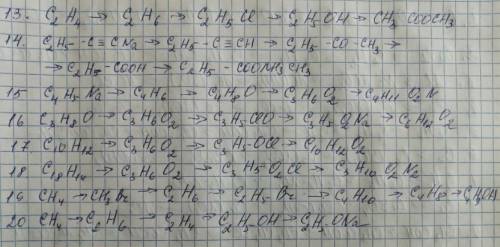 13. C2H4 → C2H6 → C2H5Cl → C2H5OH → CH3COOCH3
14. C2H5-C≡CNa → C2H5-C≡CH → C2H5-CO-CH3 →
→ C2H5-COOH → C2H5-COONH3CH3
15 C4H5Na → C4H6 → C4H8O → C3H6O2 → C4H11O2N
16 C3H8O → C3H6O2 → C3H5ClO → C3H5O2Na → C6H12O2
17. C10H12 → C3H6O2 → C3H5OCl → C10H12O2
18 C18H14 → C3H6O2 → C3H5O2Cl → C3H10O2N2
19 CH4 → CH3Br → C2H6 → C2H5Br → C4H10 → C4H8 → CH3OH
20 CH4 → C2H6 → C2H4 → C2H5OH → C2H5ONa